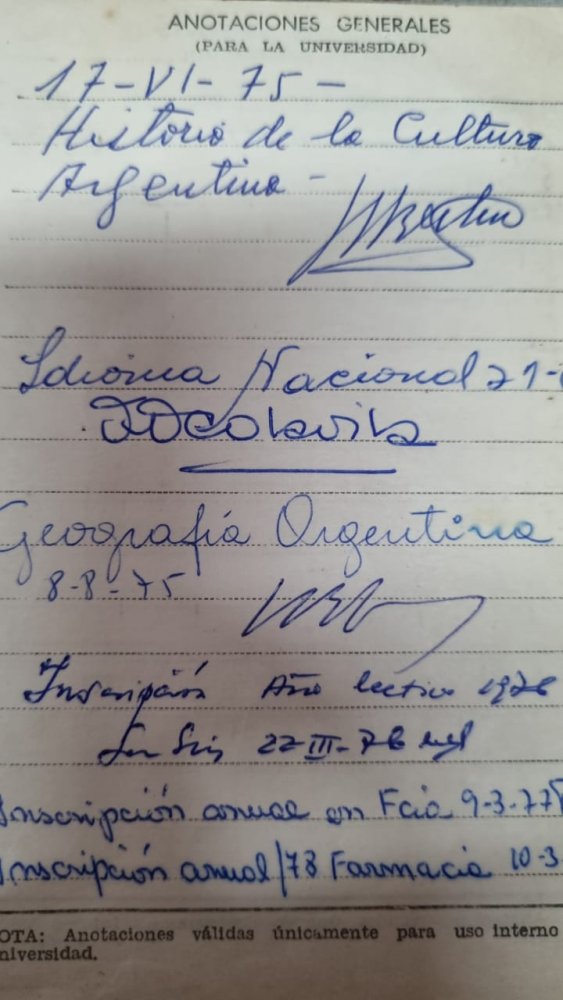 ANOTACIONES GENERALES
(PARA LA UNIVERSIDAD)
17-VI-75-
Historia de la Cultura
Argentina -
Idioma Nacional 21-
Geografía Argentina
8-8-75
Inscripción Año lectivo 1976
San Luis 22-III-76
Inscripción anual en Fcia 9-3-77
Inscripción anual/78 Farmacia 10-3-
OTA: Anotaciones válidas únicamente para uso interno
niversidad.